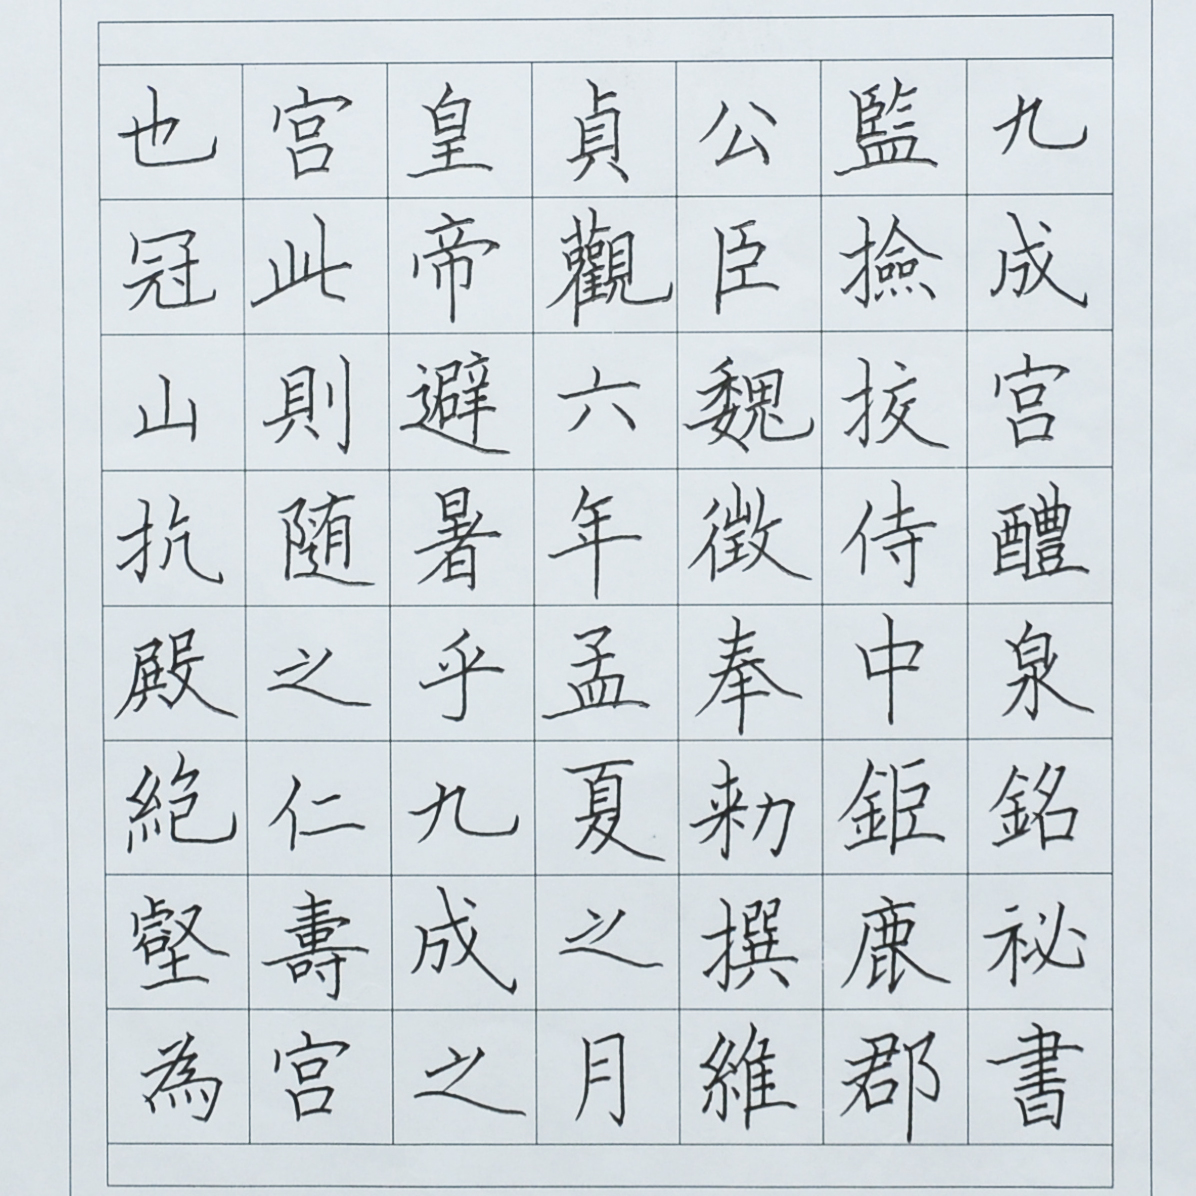 九成宫醴泉銘祕書
監撿挍侍中鉅鹿郡
公臣魏徵奉勑撰維
貞觀六年孟夏之月
皇帝避暑乎九成之
宫此則隨之仁壽宫
也冠山抗殿絶壑為